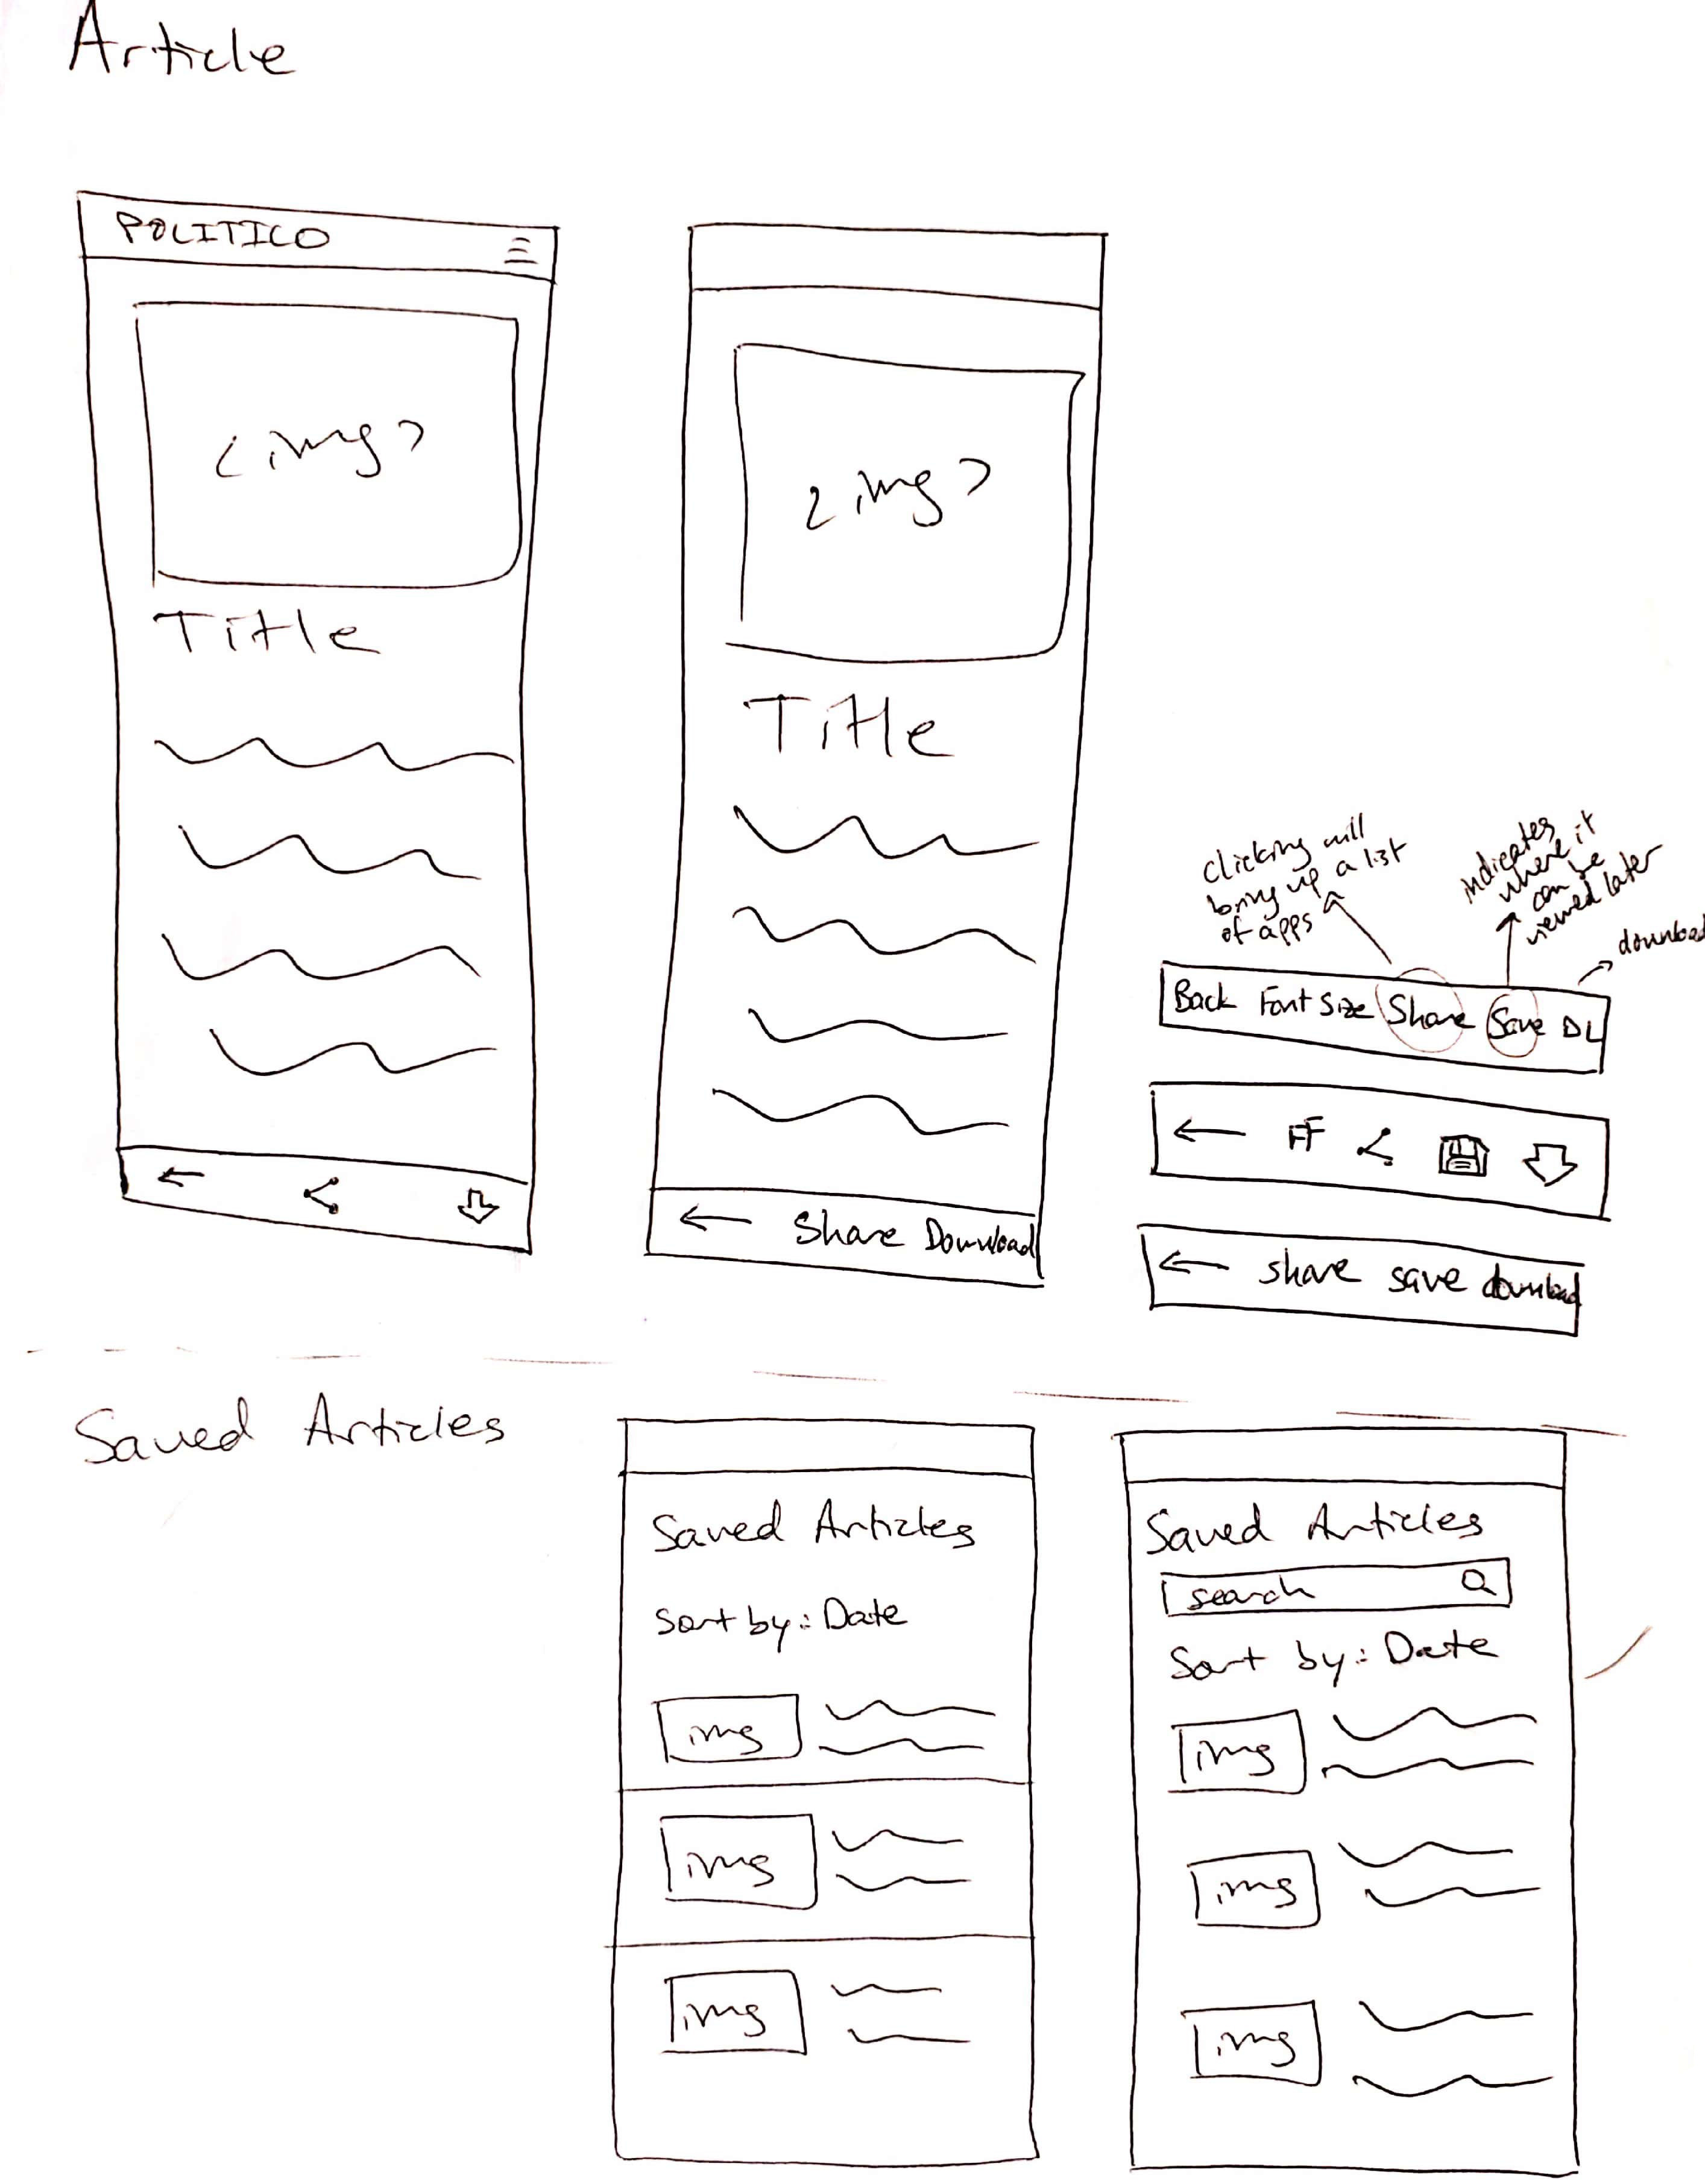 Article
POLITICO
<img>
Title
<img>
Title
Share Download
clicking will
bring up a list
of apps
indicates
where it
can be
viewed later
download
Back Font Size Share Save DL
FF
share save download
Saved Articles
Saved Articles
Sort by: Date
img
img
img
Saved Articles
search
Sort by: Date
img
img
img